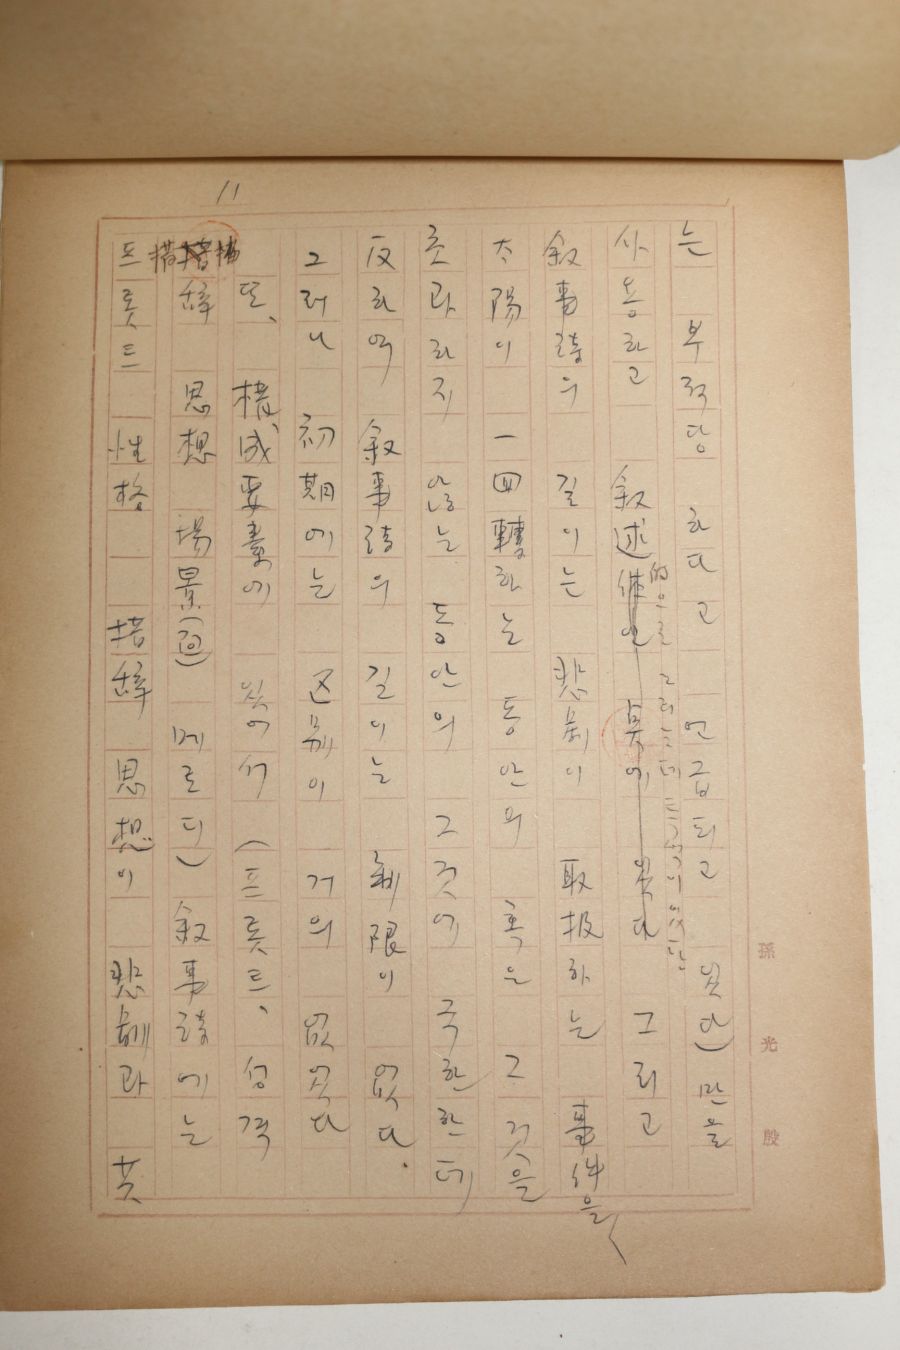 11
는 부적당 하다고 언급되고 있다) 만을
사용하고 叙述体인 点에 있다 그리고
的으로 그리는데 특색이 있다
叙事詩의 길이는 悲劇이 取扱하는 事件을
太陽이 一回轉하는 동안의 혹은 그것을
초과하지 않는 동안의 그것에 국한한데
反하여 叙事詩의 길이는 制限이 없다.
그러나 初期에는 区別이 거의 없었다
또、構成要素에 있어서 (프롯트、성격
措辞 思想 場景(面) 메로디) 叙事詩에는
프롯트 性格 措辞 思想이 悲劇과 共
孫光殷